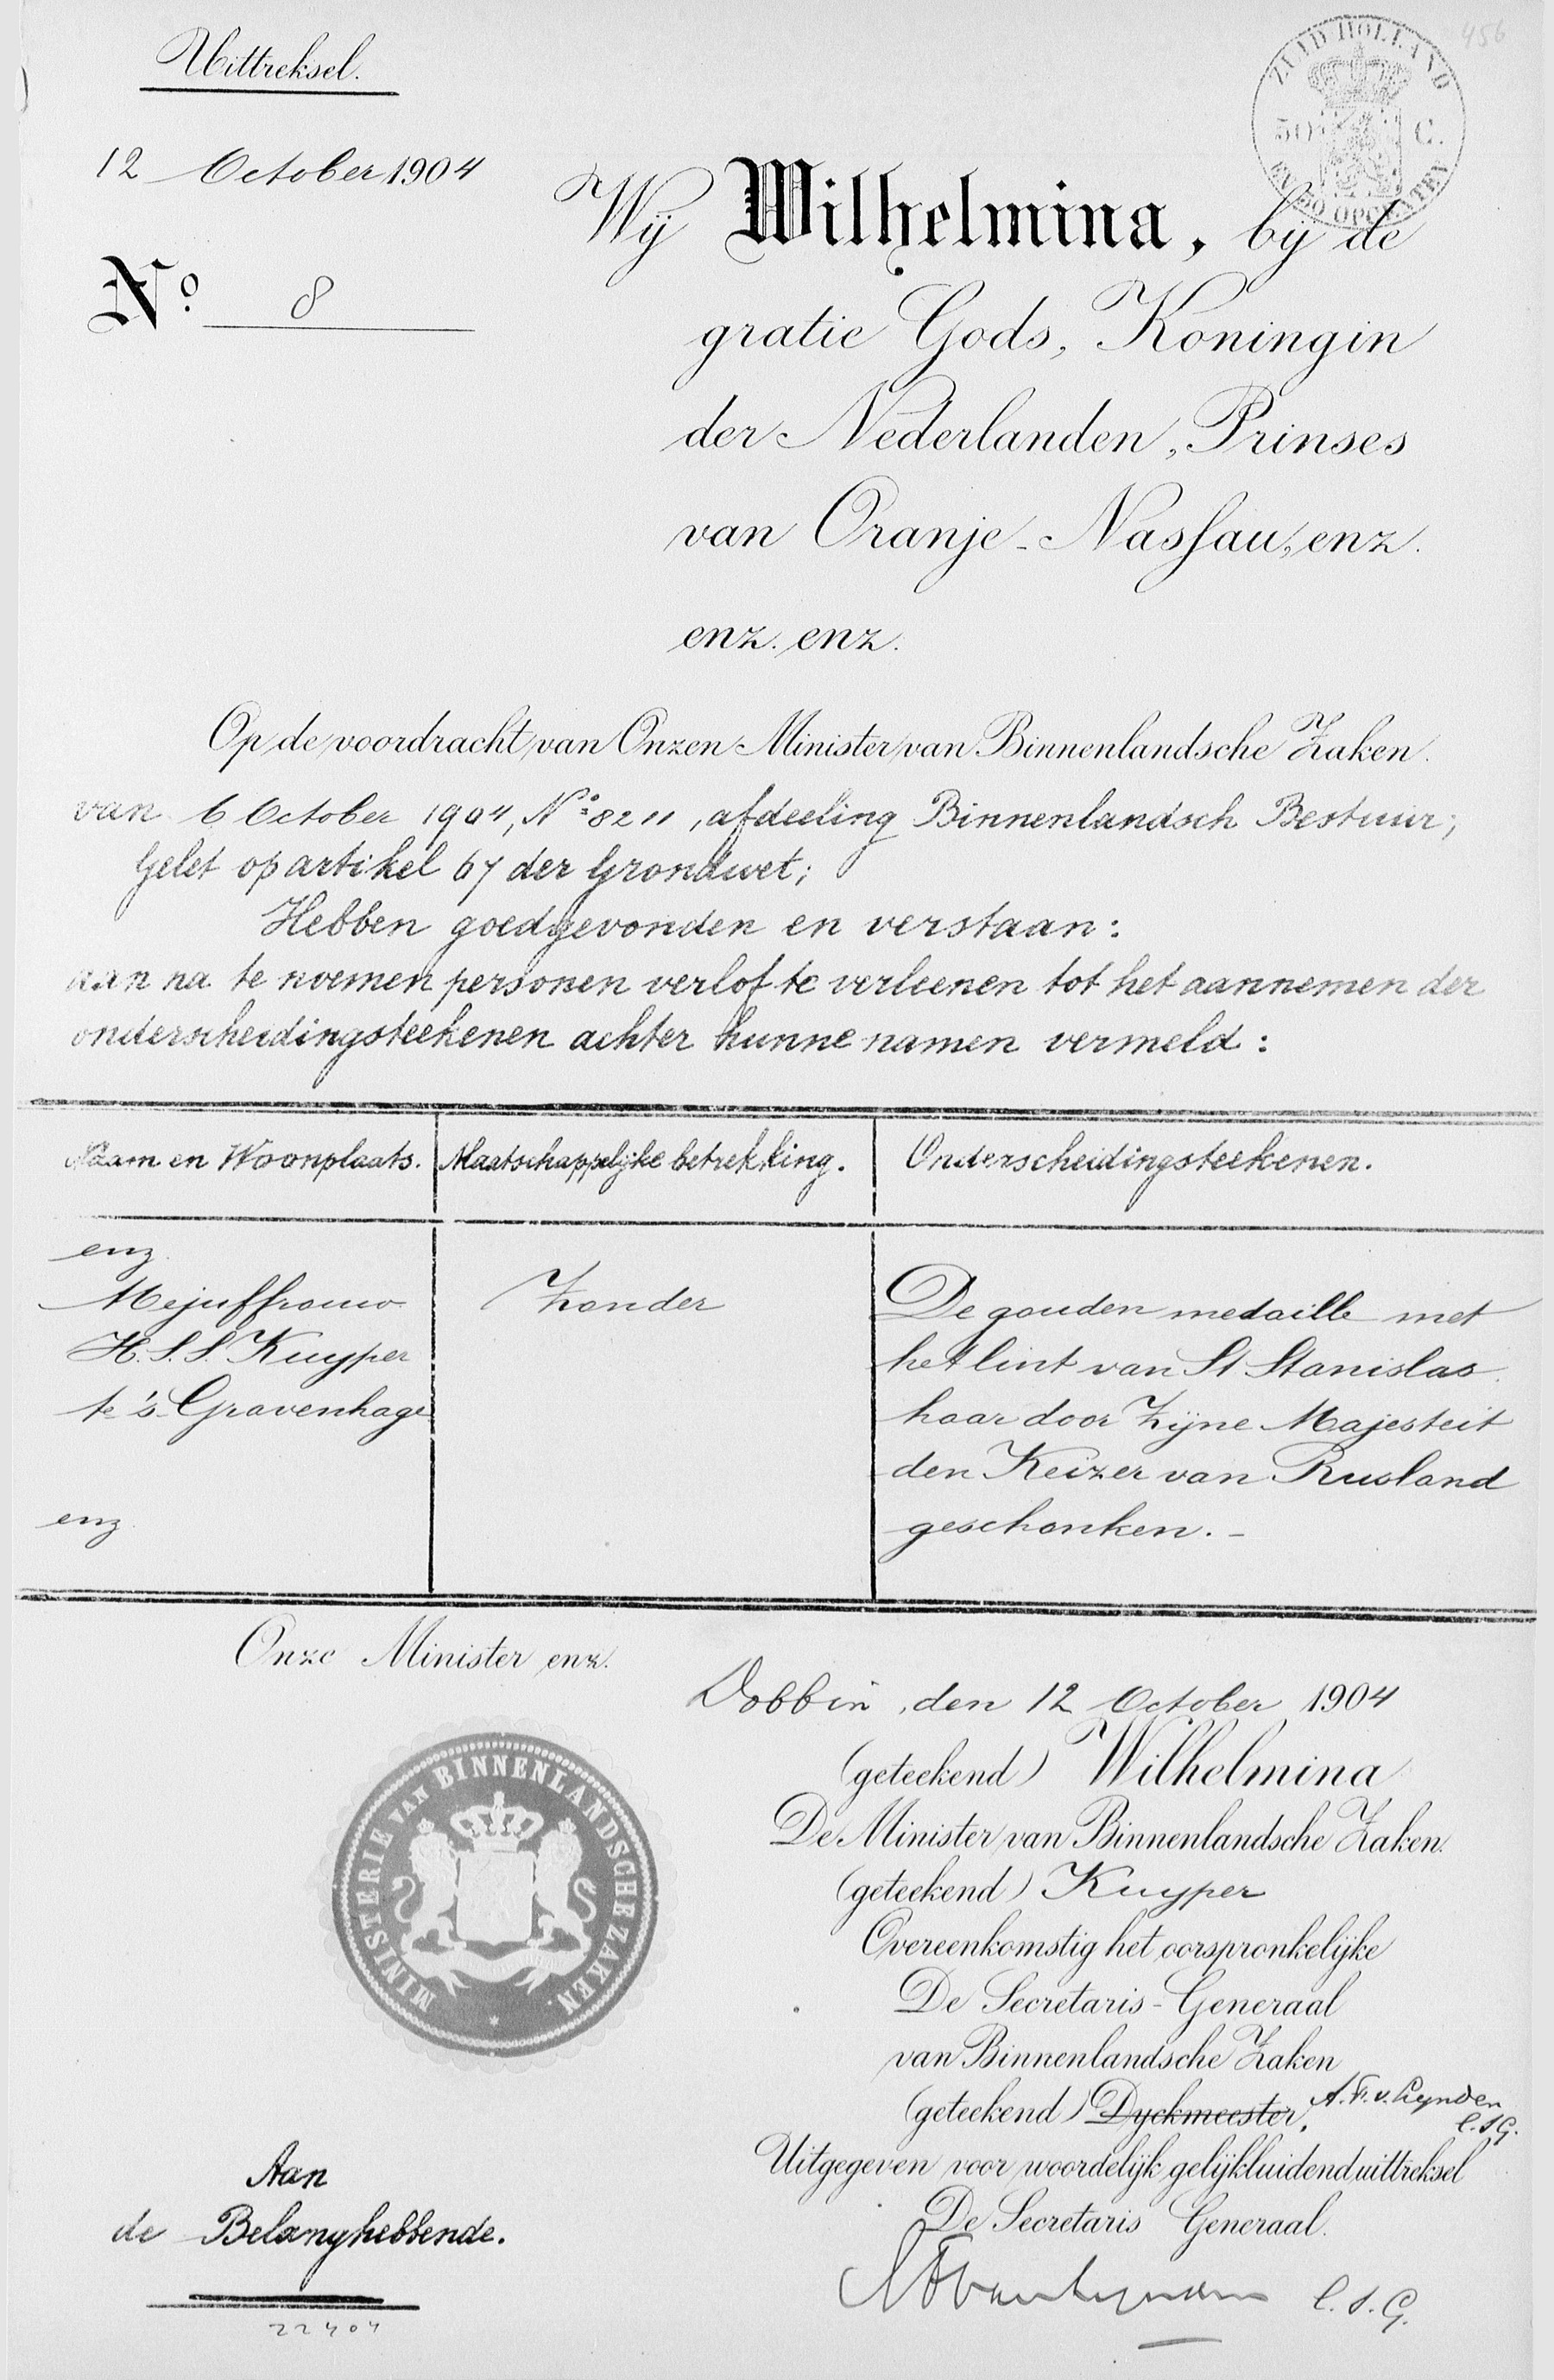 Uittreksel.
456
ZUID HOLLAND
50 C.
EN 50 OPCENTEN
12 October 1904
Nº 8
Wij Wilhelmina, bij de
gratie Gods, Koningin
der Nederlanden, Prinses
van Oranje-Nassau, enz.
enz. enz.
Op de voordracht van Onzen Minister van Binnenlandsche Zaken.
van 6 October 1904, Nº 8211, afdeeling Binnenlandsch Bestuur;
Gelet op artikel 67 der Grondwet;
Hebben goedgevonden en verstaan:
aan na te noemen personen verlof te verleenen tot het aannemen der
onderscheidingsteekenen achter hunne namen vermeld:
Naam en Woonplaats. Maatschappelijke betrekking. Onderscheidingsteekenen.
enz.
Mejuffrouw
H. S. S. Kuyper
te 's-Gravenhage
enz.
Zonder
De gouden medaille met
het lint van St Stanislas
haar door Zijne Majesteit
den Keizer van Rusland
geschonken. -
Onze Minister enz.
Dobbin, den 12 October 1904
(geteekend) Wilhelmina
De Minister van Binnenlandsche Zaken.
(geteekend) Kuyper
Overeenkomstig het oorspronkelijke
De Secretaris-Generaal
van Binnenlandsche Zaken
(geteekend) Dyckmeester, A. F. v. Lynden
l. S. G.
Uitgegeven voor woordelijk gelijkluidend uittreksel
De Secretaris Generaal.
AFvanLynden l. S. G.
MINISTERIE VAN BINNENLANDSCHE ZAKEN.
Aan
de Belanghebbende.
22404